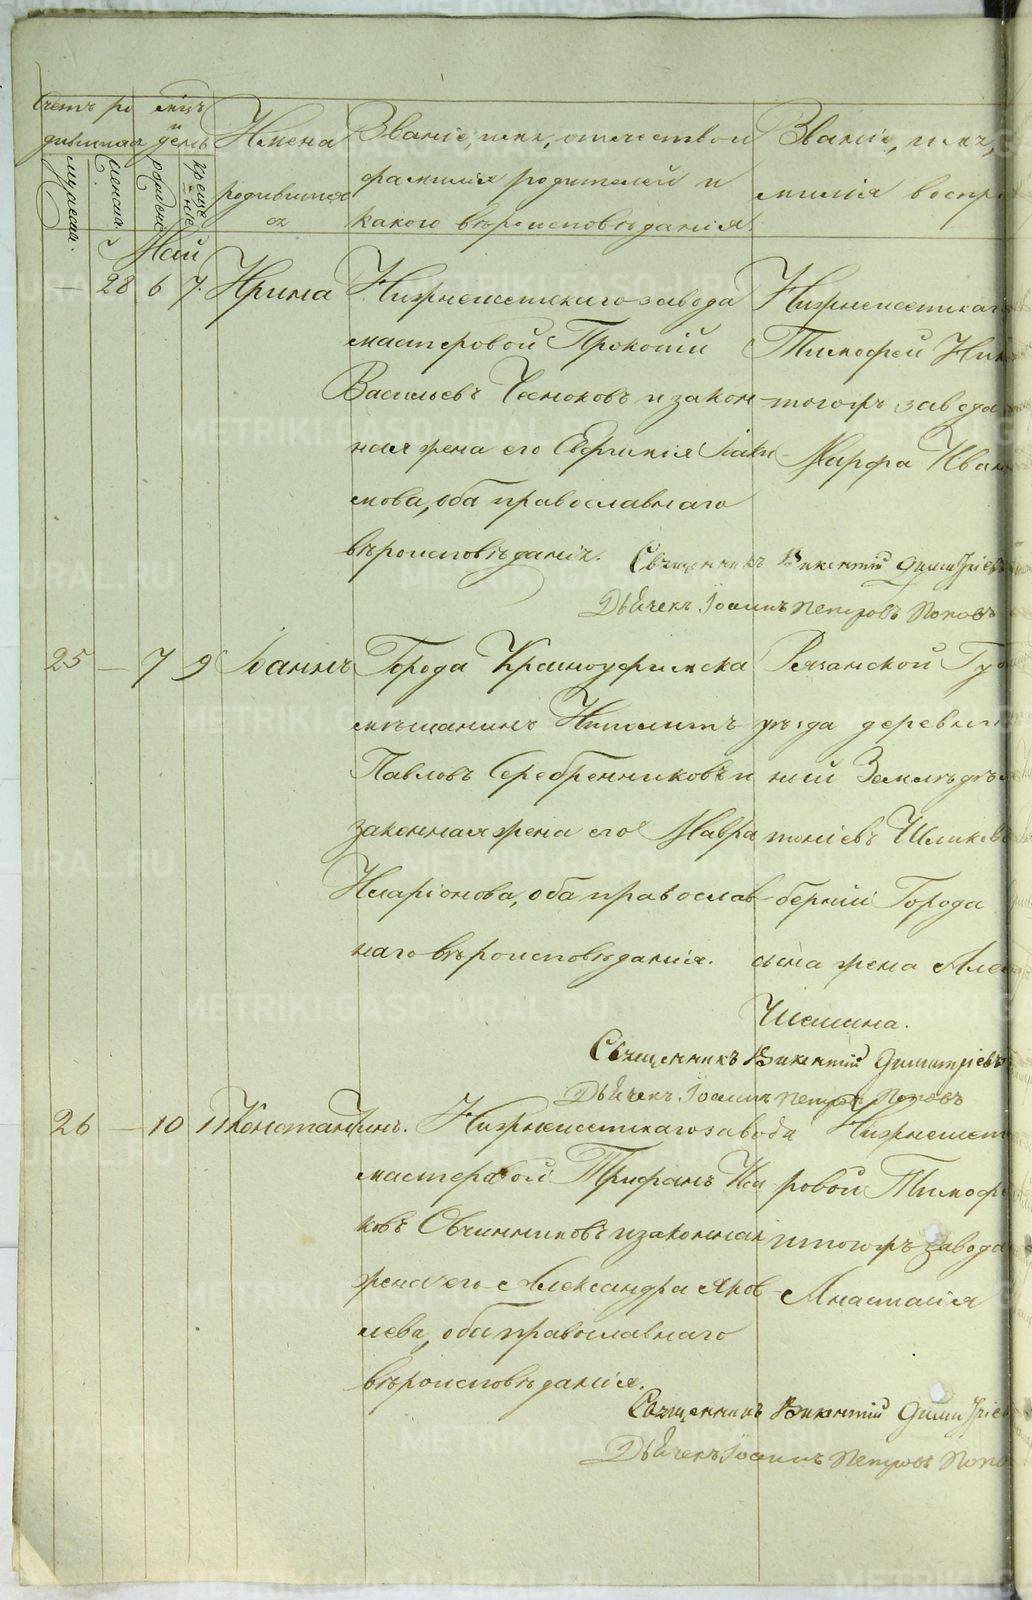 Счетъ ро
дившихся
мужеска.
женска.
мѣць
и
день
рожденія
крещенія
Имена
родивших
ся
Званіе, имя, отечество и
фамилія родителей и
какого вѣроисповѣданія.
Званіе, имя,
милія воспр
Май
— 28 6 7. Ирина
Нижнеисетскаго завода
мастеровой Прокопій
Васильевъ Чесноковъ и закон
ная жена его Евгенія
мова, оба православнаго
вѣроисповѣданія.
Нижнеисетскаг
Тимофей Ник
тогожъ завода
Марфа Иван
Священникъ Викентій Димитріев
Дьячекъ Іоаннъ Петровъ Поповъ
25 — 7 9 Іоаннъ
Города Красноуфимска
мѣщанинъ Ипполитъ
Павловъ Серебренниковъ и
законная жена его Мавра
Иларіонова, оба православ
наго вѣроисповѣданія.
Рязанской Гу
уѣзда деревни
ній Земледѣ
тоніевъ Шишков
берніи Города
сына жена Але
Шешина.
Священникъ Викентій Димитріевъ
Дьячекъ Іоаннъ Петровъ Поповъ
26 — 10 11 Константинъ.
Нижнеисетскаго завода
мастеровой Трифанъ Иса
ковъ Овчинниковъ и законная
жена его Александра Яков
лева, оба православнаго
вѣроисповѣданія.
Нижнеисет
ровой Тимоф
тогожъ завода
Анастасія
Священникъ Викентій Димитріе
Дьячекъ Іоаннъ Петровъ Попо
METRIKI.GASO-URAL.RU